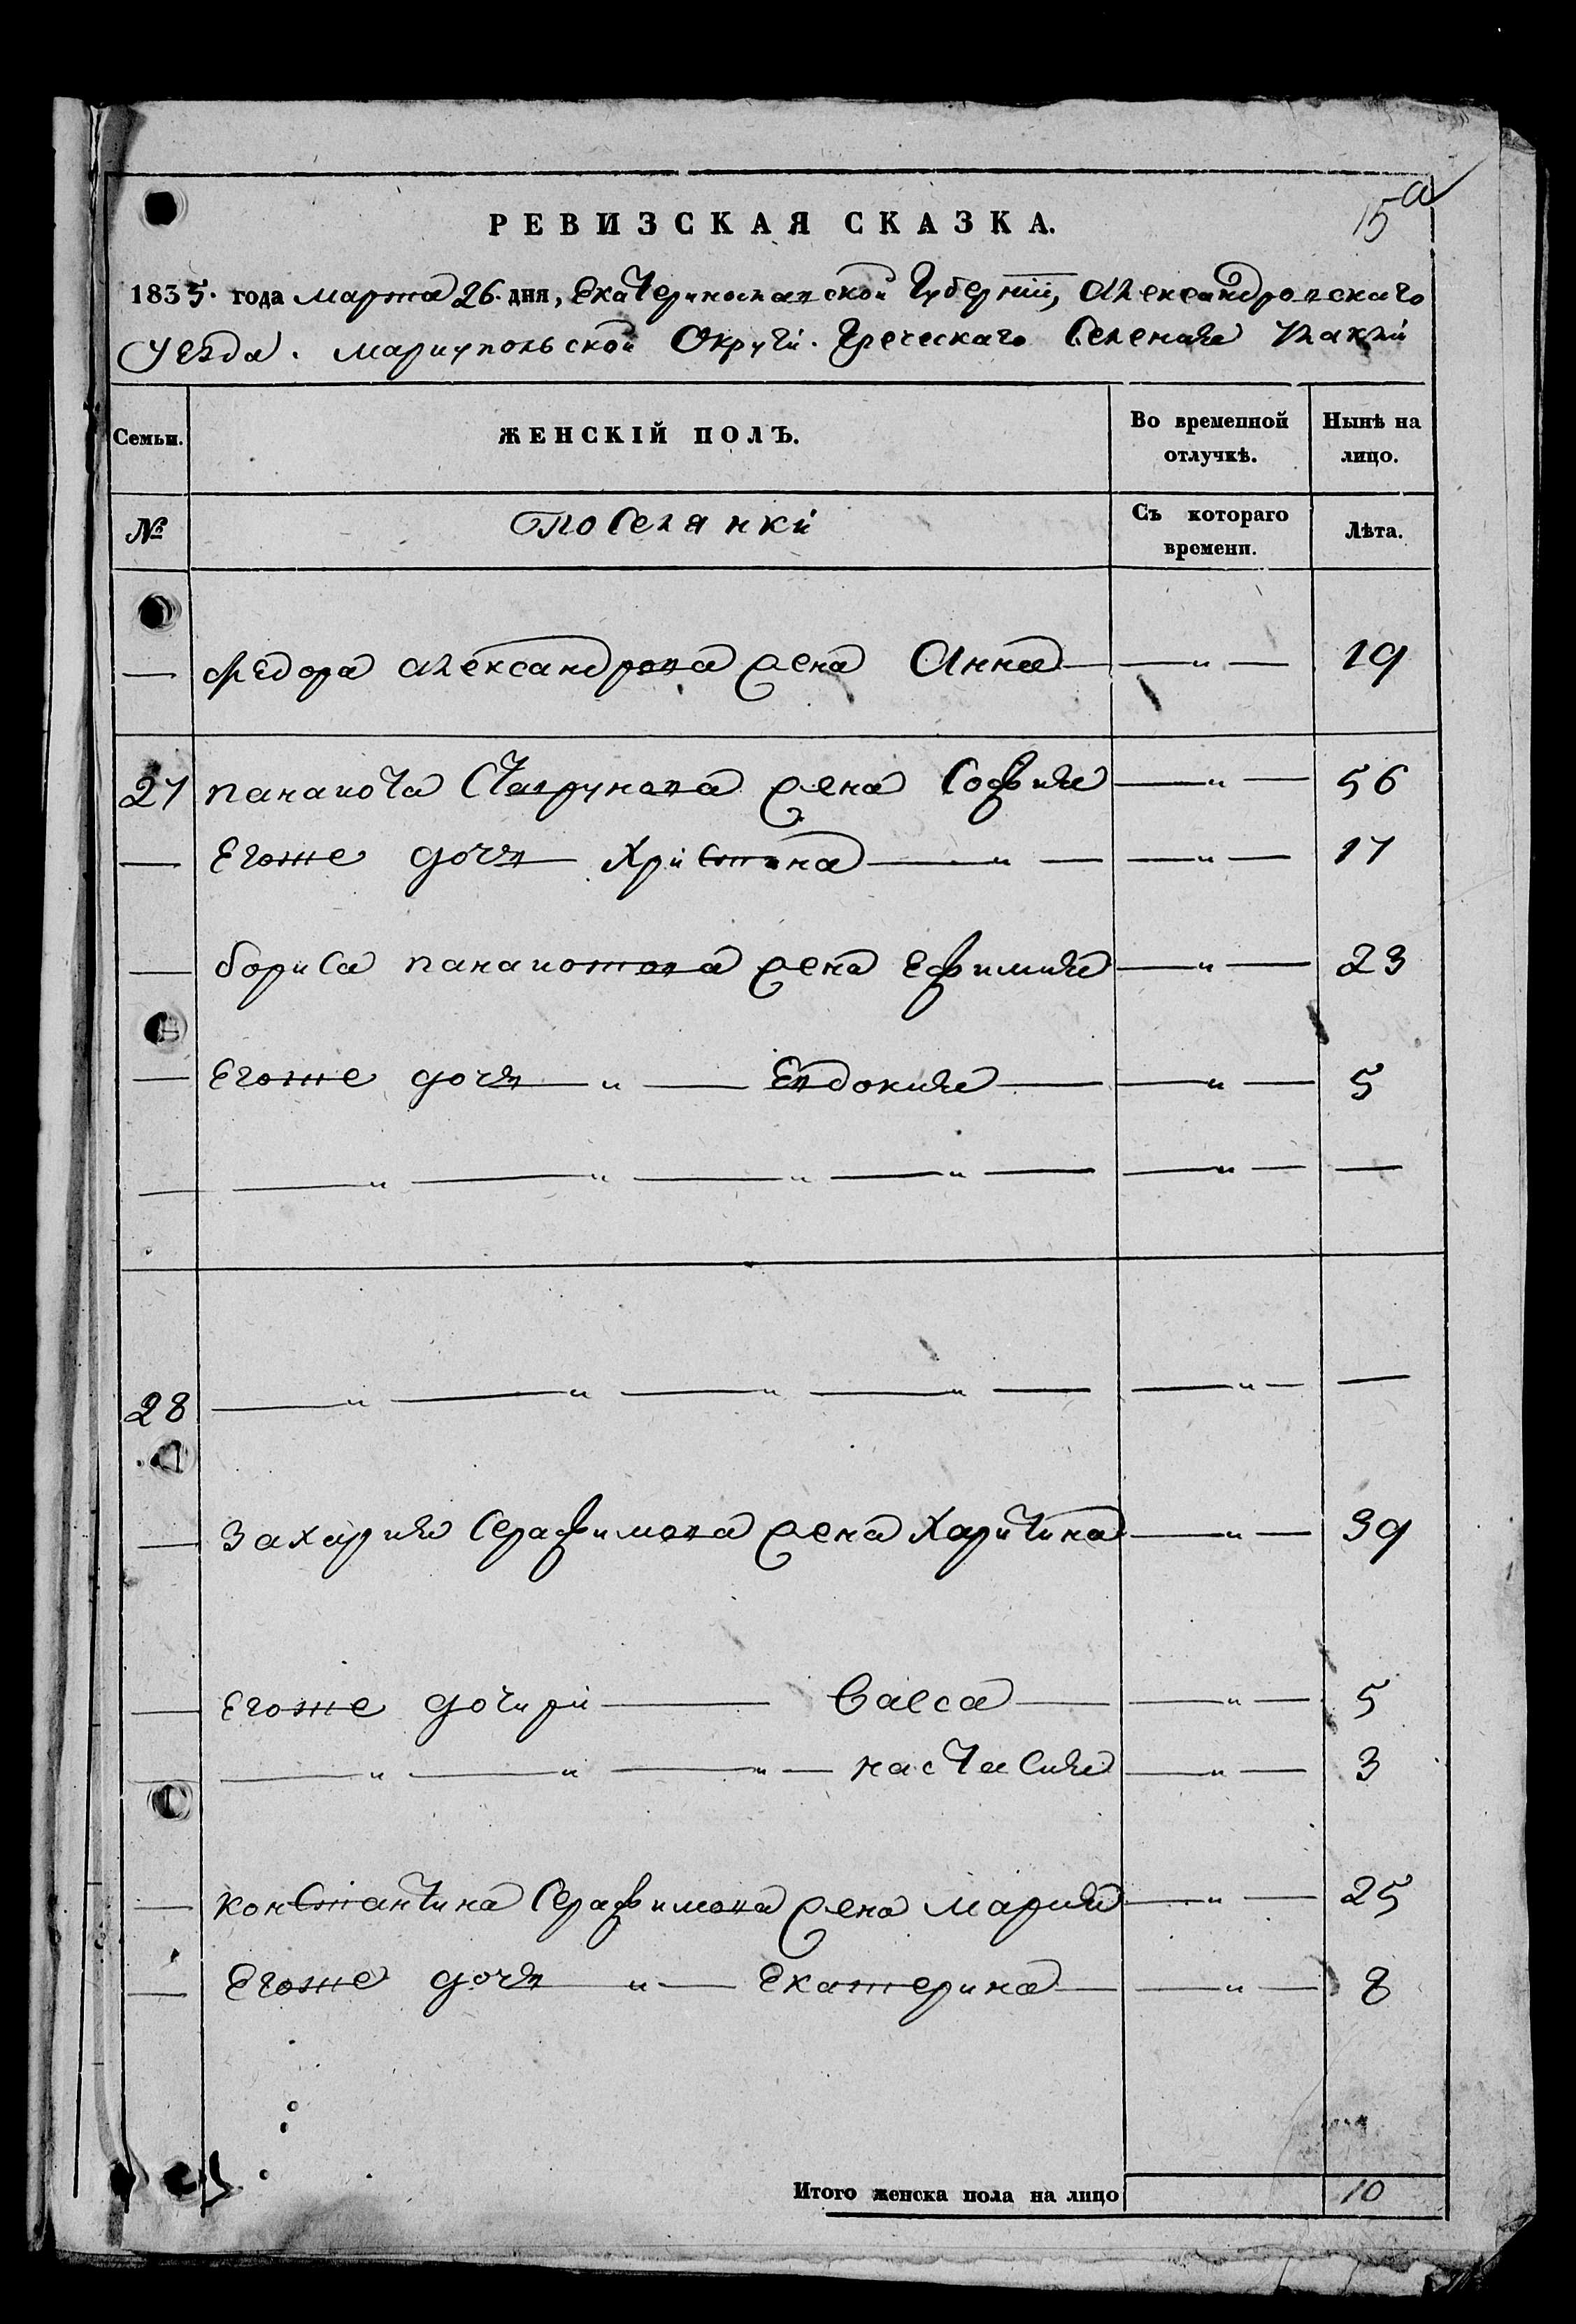 15а
РЕВИЗСКАЯ СКАЗКА.
1835. года марта 26. дня, Екатеринославской Губернии, Александровскаго
Уезда. Мариупольской Округи. Греческаго Селения
Семьи.
ЖЕНСКІЙ ПОЛЪ.
Во временной отлучкѣ.
Нынѣ на лицо.
№
Поселянки
Съ котораго времени.
Лѣта.
— Федора Александрова жена Анна — — „ — 19
27 Панаиота Ставрунова жена София — „ — 56
— Егоже дочь Христина — „ — — „ — 17
— Бориса Панаиотова жена Ефимия — „ — 23
— Егоже дочь — „ — Евдокия — — „ — 5
— — „ — „ — „ — „ — — „ — —
28 — „ — „ — „ — „ — — „ — —
— Захария Серафимова жена Харитина — „ — 39
— Егоже дочири — Васса — — „ — 5
— — „ — „ — „ — Настасия — „ — 3
— Константина Серафимова жена Мария — „ — 25
— Егоже дочь — „ — Екатерина — — „ — 8
Итого женска пола на лицо 10